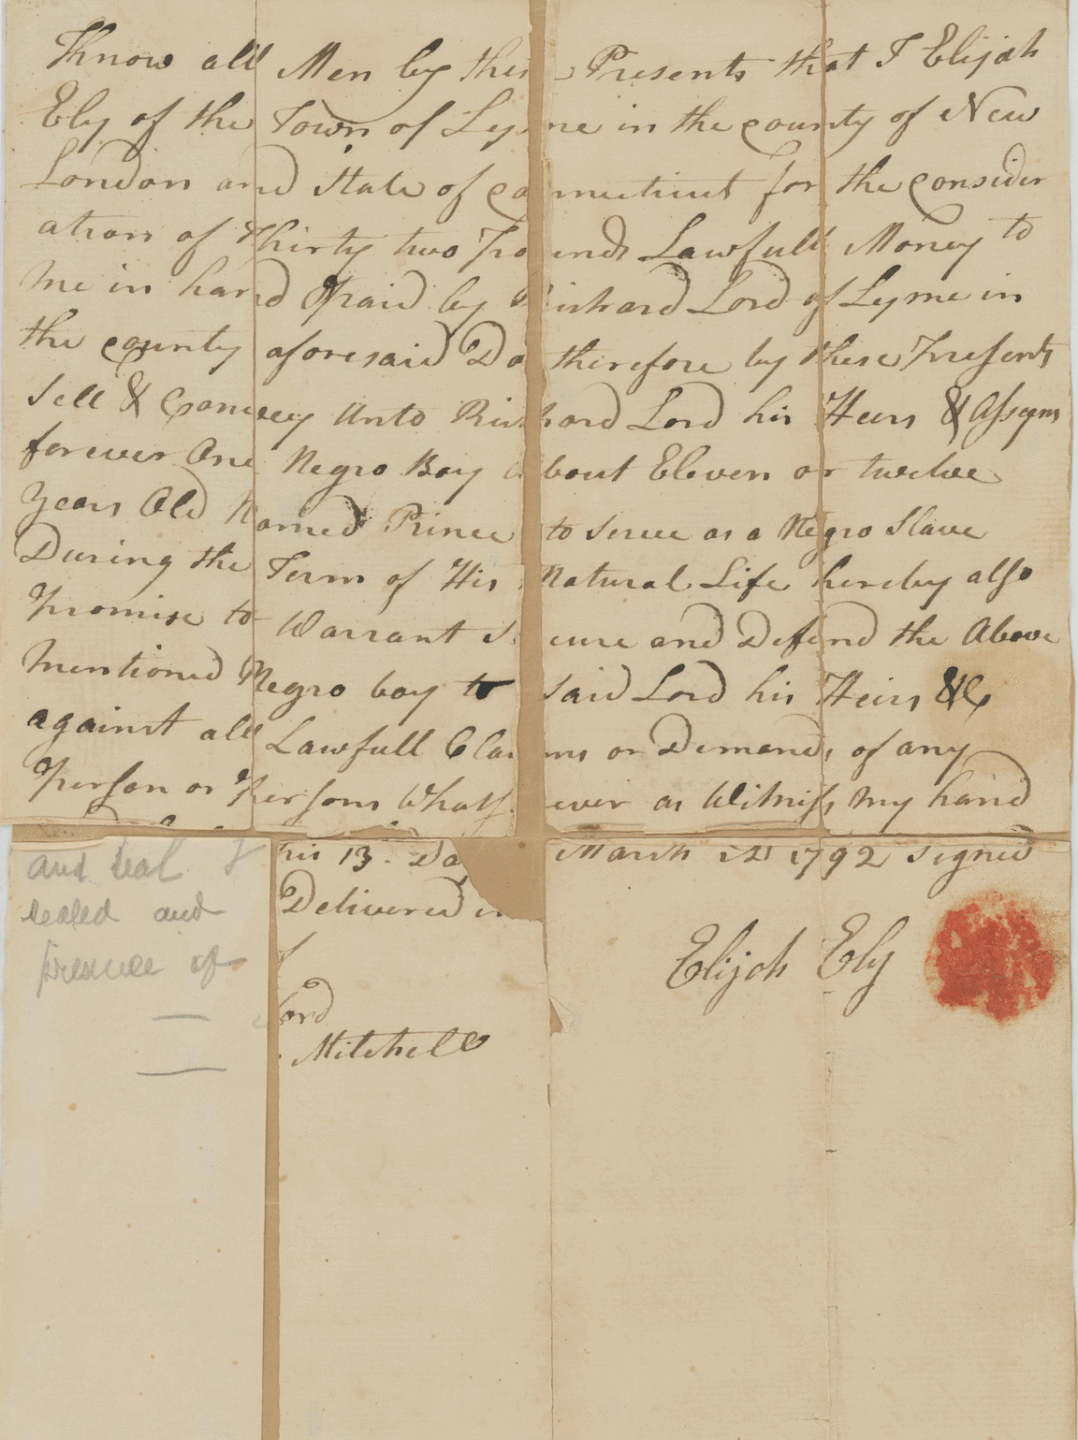 Know all Men by thes Presents that I Elijah
Ely of the Town of Lyme in the county of New
London and State of Connecticut for the consider
ation of Thirty two Pounds Lawfull Money to
me in hand Paid by Richard Lord of Lyme in
the county aforesaid Do therefore by these Presents
Sell & Convey Unto Richard Lord his Heirs & Assigns
forever One Negro Boy about Eleven or twelve
Years Old Named Prince to serve as a Negro Slave
During the Term of His Natural Life hereby also
Promise to Warrant Secure and Defend the Above
Mentioned Negro boy to said Lord his Heirs &c
against all Lawfull Claims or Demands of any
Person or Persons Whatsoever as Witness my hand
and seal this 13 Day March AD 1792 Signed
sealed and Delivered in
presence of
Elijah Ely
Lord
Mitchell